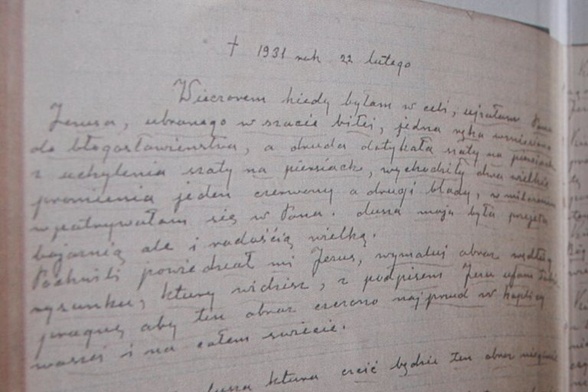 + 1931 rok 22 lutego
Wieczorem kiedy byłam w celi, ujrzałam Pana
Jezusa, ubranego w szacie białej, jedna ręka wzniesiona
do błogosławieństwa, a druga dotykała szaty na piersiach
z uchylenia szaty na piersiach, wychodziły dwa wielkie
promienia jeden czerwony a drugi blady, w milczeniu
wpatrywałam się w Pana. dusza moja była przejęta
bojaźnią ale i radością wielką.
Po chwili powiedział mi Jezus, wymaluj obraz według
rysunku, ktury widzisz, z podpisem Jezu ufam Tobie
pragnę aby ten obraz czczono najprzud w kaplicy
waszej i na całem świecie.
dusza ktura czcić będzie ten obraz nie